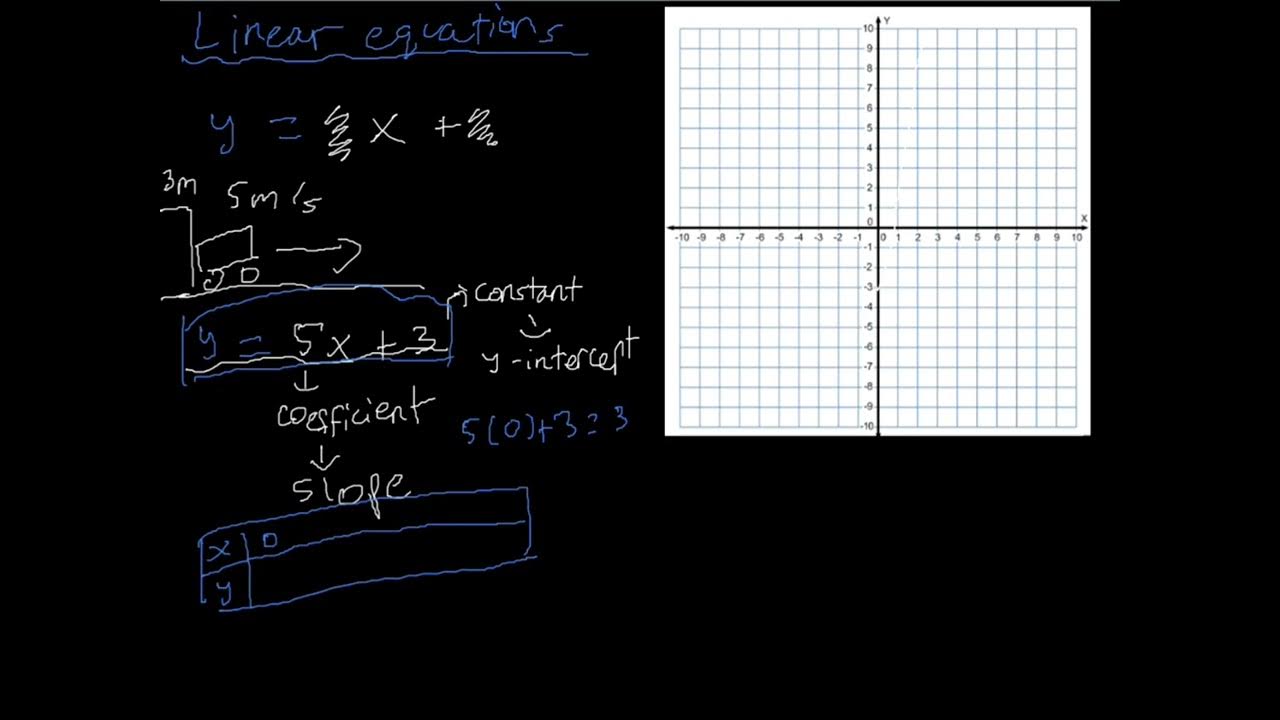 Linear equations
y = x +
3m
5m/s
y = 5x + 3
constant
y-intercept
coefficient
5(0)+3=3
slope
x 0
y
Y
10
9
8
7
6
5
4
3
2
1
0
X
-10 -9 -8 -7 -6 -5 -4 -3 -2 -1 0 1 2 3 4 5 6 7 8 9 10
-1
-2
-3
-4
-5
-6
-7
-8
-9
-10